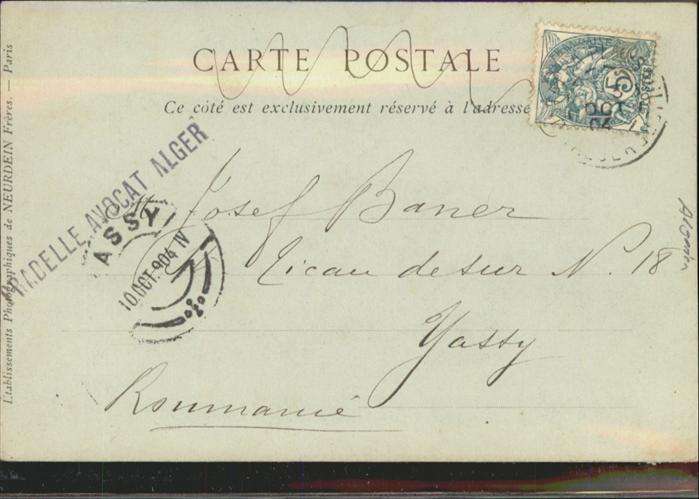 CARTE POSTALE
Ce côté est exclusivement réservé à l'adresse
Josef Baner
N. 18
Yassy
Roumanie
RADELLE AVOCAT ALGER
ASSY
10 OCT. 904 IV
5
OCT
04
Etablissements Photographiques de NEURDEIN Frères. — Paris